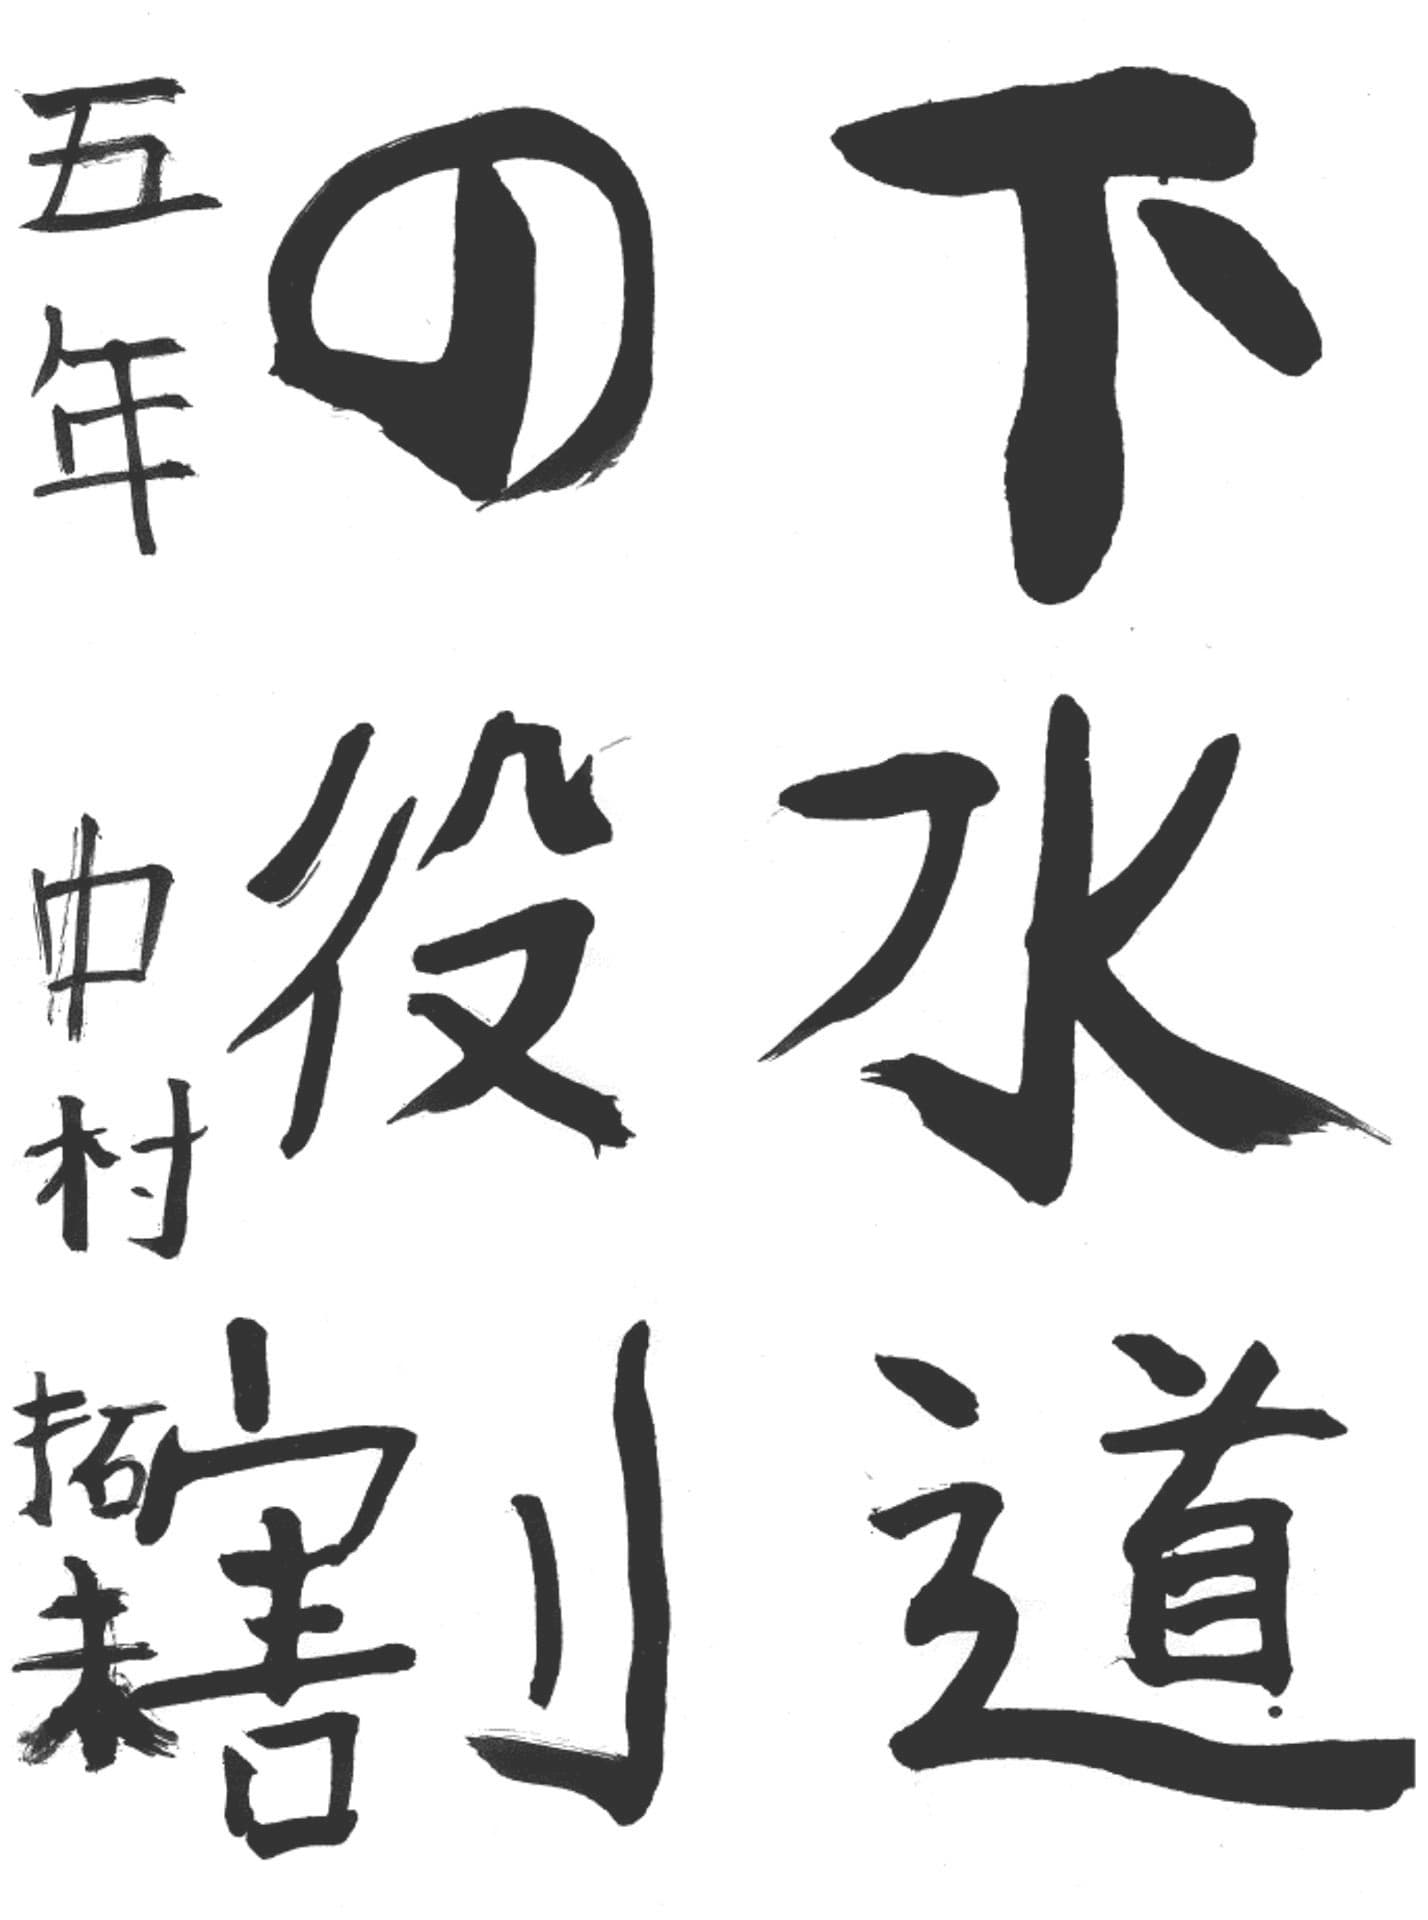 下水道
の役割
五年 中村拓未